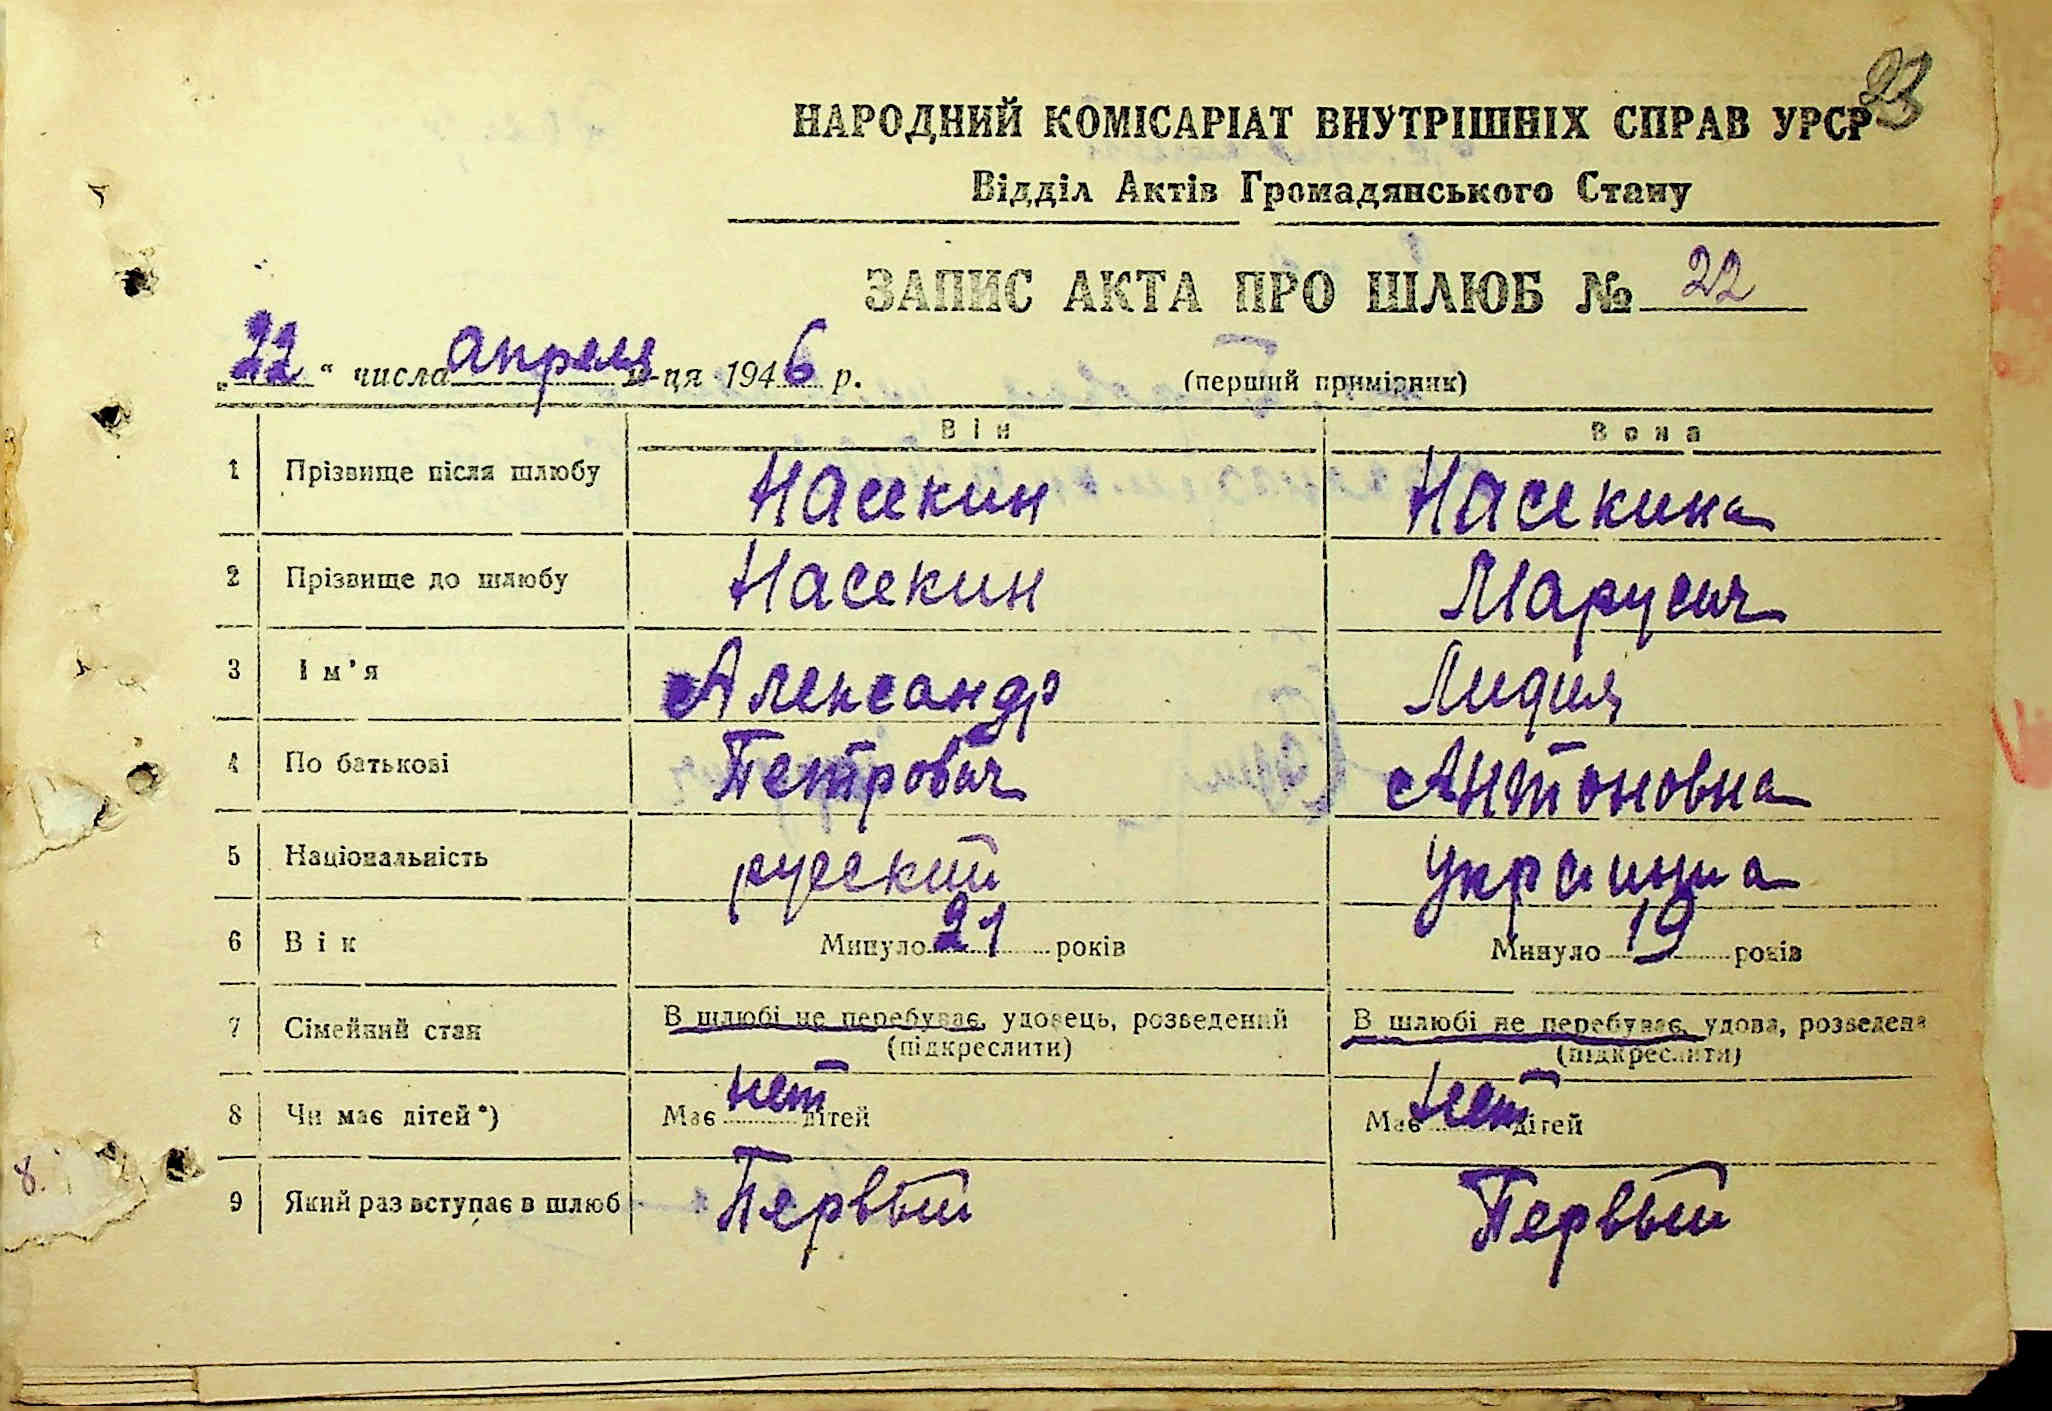 23
НАРОДНИЙ КОМІСАРІАТ ВНУТРІШНІХ СПРАВ УРСР
Відділ Актів Громадянського Стану
ЗАПИС АКТА ПРО ШЛЮБ № 22
„22“ числа апреля м-ця 1946 р. (перший примірник)
Він Вона
1 Прізвище після шлюбу Насекин Насекина
2 Прізвище до шлюбу Насекин Марусич
3 Ім'я Александр Лидия
4 По батькові Петрович Антоновна
5 Національність русский украинка
6 Вік Минуло 21 років Минуло 19 років
7 Сімейний стан В шлюбі не перебуває, удовець, розведений В шлюбі не перебуває, удова, розведена
(підкреслити) (підкреслити)
8 Чи має дітей*) Має нет дітей Має нет дітей
9 Який раз вступає в шлюб Первый Первый
8.